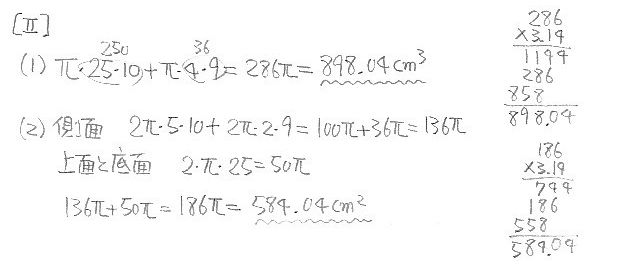 [Ⅱ]
250 36
(1) π・25・10+π・4・9=286π=898.04cm³
(2) 側面 2π・5・10+2π・2・9=100π+36π=136π
上面と底面 2・π・25=50π
136π+50π=186π=584.04cm²
286
×3.14
1144
286
858
898.04
186
×3.14
744
186
558
584.04